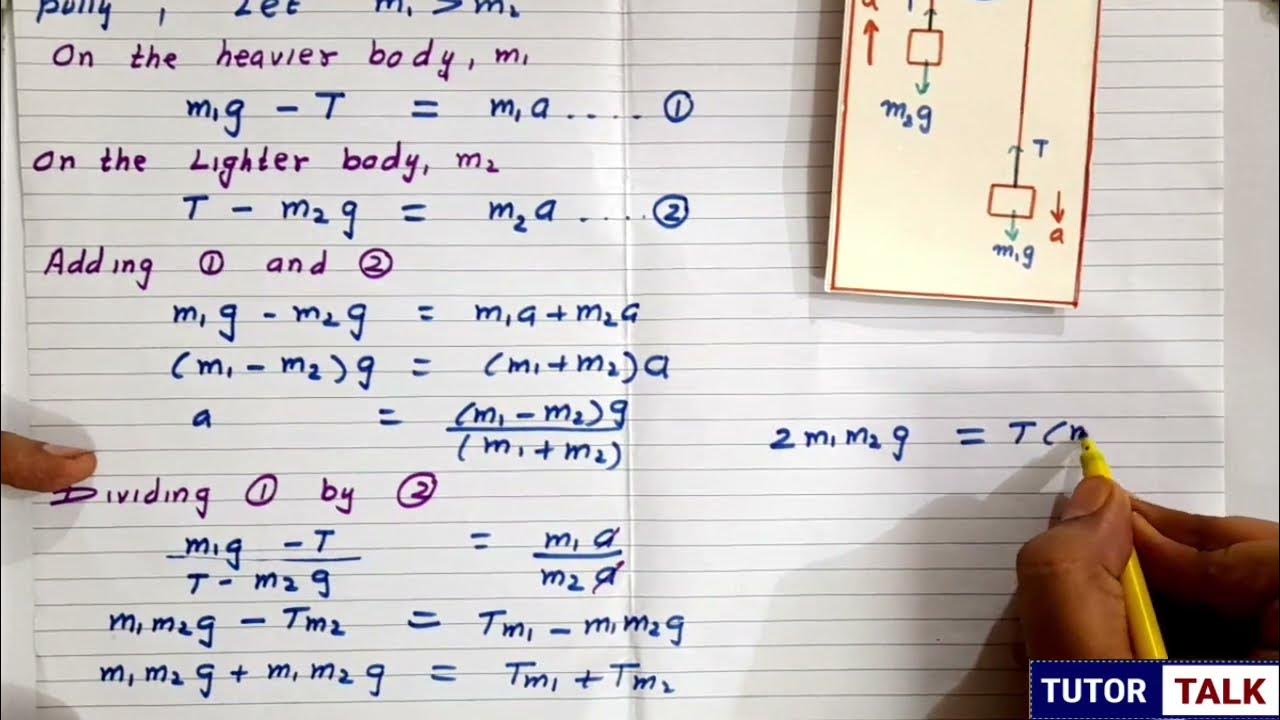 pully, Let m₁ > m₂
On the heavier body, m₁
m₁g - T = m₁a .... ①
On the Lighter body, m₂
T - m₂g = m₂a .... ②
Adding ① and ②
m₁g - m₂g = m₁a + m₂a
(m₁ - m₂)g = (m₁ + m₂)a
a = (m₁ - m₂)g / (m₁ + m₂)
Dividing ① by ②
m₁g - T / T - m₂g = m₁a / m₂a
m₁m₂g - Tm₂ = Tm₁ - m₁m₂g
m₁m₂g + m₁m₂g = Tm₁ + Tm₂
a
m₂g
T
m₁g
a
2m₁m₂g = T(m
TUTOR TALK